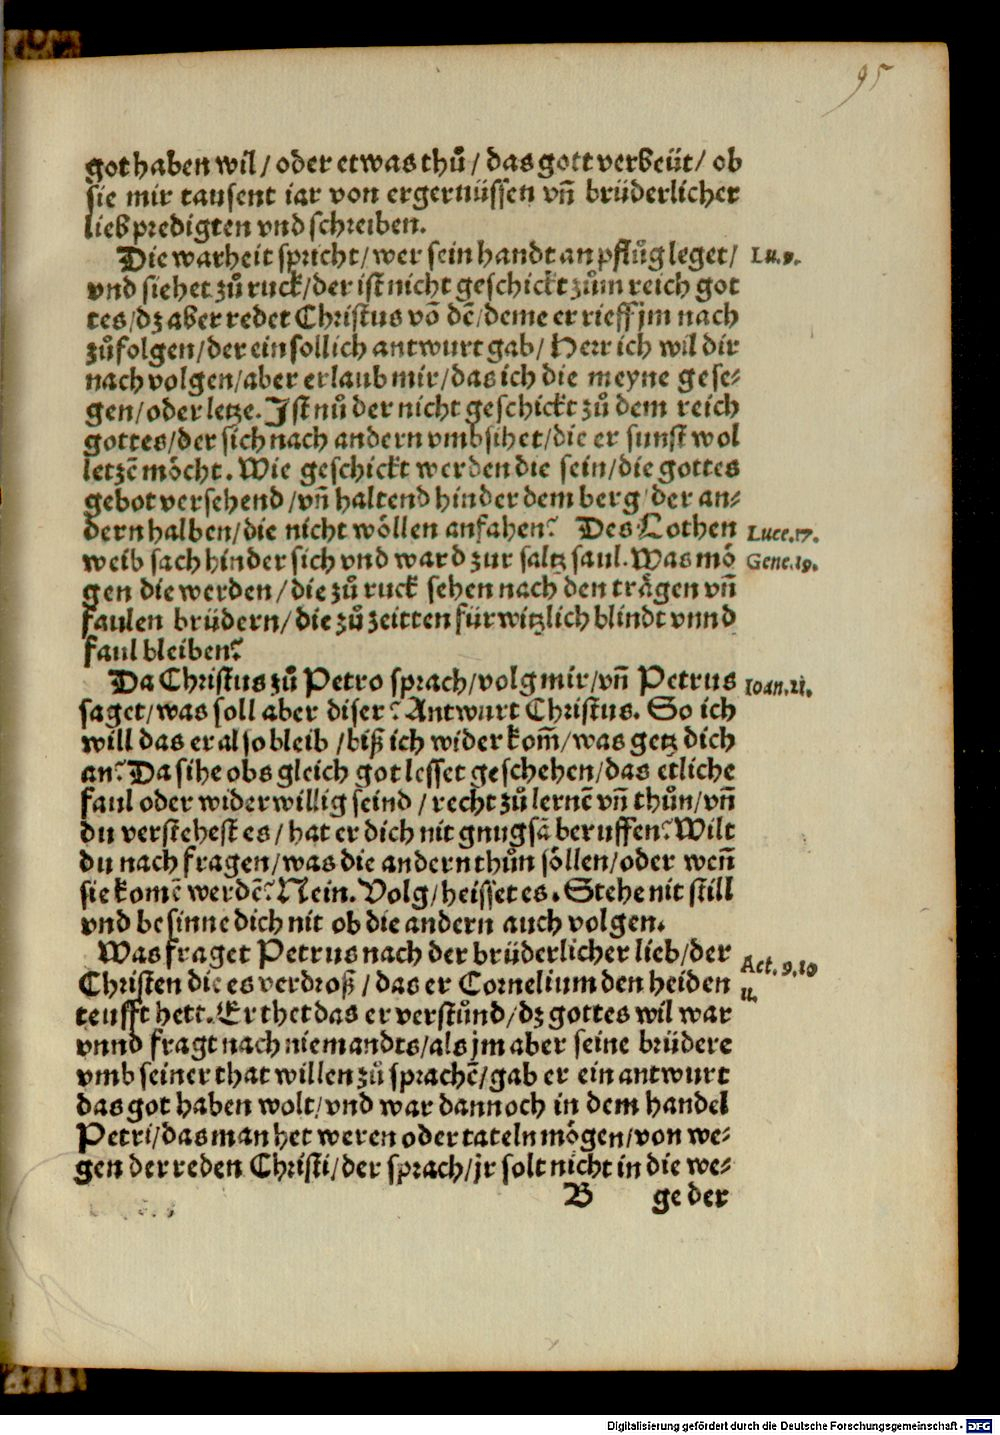 95
got haben wil / oder etwas thů / das gott verbeüt / ob
sie mir tausent iar von ergernüssen vñ brüderlicher
lieb predigten vnd schreiben.
Die warheit spricht / wer sein handt an pflůg leget /
Lu.9.
vnd siehet zů ruck / der ist nicht geschickt zům reich got
tes / dz aber redet Christus võ dẽ / deme er rieff jm nach
zůfolgen / der ein sollich antwurt gab / Herr ich wil dir
nach volgen / aber erlaub mir / das ich die meyne gese⸗
gen / oder letze. Ist nů der nicht geschickt zů dem reich
gottes / der sich nach andern vmbsihet / die er sunst wol
letzẽ möcht. Wie geschickt werden die sein / die gottes
gebot versehend / vñ haltend hinder dem berg / der an⸗
dern halben / die nicht wöllen anfahen? Des Lothen
Luce.17.
weib sach hinder sich vnd ward zur saltz saul. Was mö
Gene.19.
gen die werden / die zů ruck sehen nach den trägen vñ
faulen brüdern / die zů zeitten fürwitzlich blindt vnnd
faul bleiben?
Da Christus zů Petro sprach / volg mir / vñ Petrus
Ioan.21.
saget / was soll aber diser? Antwurt Christus. So ich
will das er also bleib / biß ich wider kom̃ / was getz dich
an? Da sihe obs gleich got lesset geschehen / das etliche
faul oder widerwillig seind / recht zů lernẽ vñ thůn / vñ
du verstehest es / hat er dich nit gnugsã beruffen? Wilt
du nach fragen / was die andern thůn söllen / oder weñ
sie komẽ werdẽ? Nein. Volg / heisset es. Stehe nit still
vnd besinne dich nit ob die andern auch volgen.
Was fraget Petrus nach der brüderlicher lieb / der
Act. 9.10
Christen die es verdroß / das er Cornelium den heiden
11.
teufft hett. Er thet das er verstůnd / dz gottes wil war
vnnd fragt nach niemandts / als jm aber seine brüdere
vmb seiner that willen zů sprachẽ / gab er ein antwurt
das got haben wolt / vnd war dannoch in dem handel
Petri / das man het weren oder tateln mögen / von we⸗
gen der reden Christi / der sprach / jr solt nicht in die we⸗
B ge der
Digitalisierung gefördert durch die Deutsche Forschungsgemeinschaft - DFG